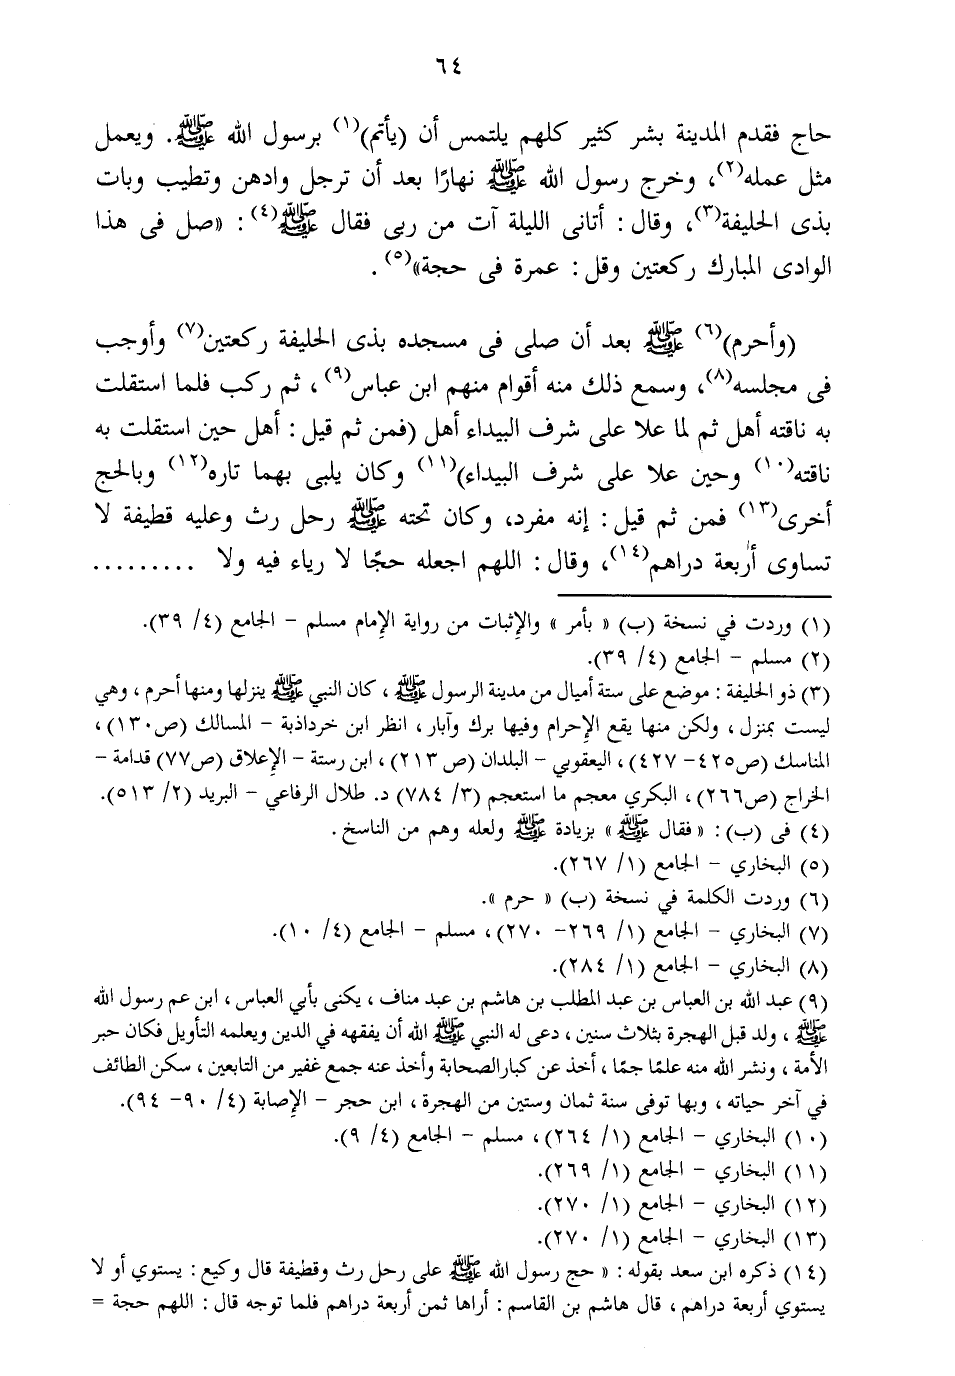 ٦٤
حاج فقدم المدينة بشر كثير كلهم يلتمس أن (يأتم)(١) برسول الله ﷺ. ويعمل
مثل عمله(٢)، وخرج رسول الله ﷺ نهارًا بعد أن ترجل وادهن وتطيب وبات
بذى الحليفة(٣)، وقال: أتانى الليلة آت من ربى فقال ﷺ(٤): «صل فى هذا
الوادى المبارك ركعتين وقل: عمرة فى حجة»(٥).
(وأحرم)(٦) ﷺ بعد أن صلى فى مسجده بذى الحليفة ركعتين(٧) وأوجب
فى مجلسه(٨)، وسمع ذلك منه أقوام منهم ابن عباس(٩)، ثم ركب فلما استقلت
به ناقته أهل ثم لما علا على شرف البيداء أهل (فمن ثم قيل: أهل حين استقلت به
ناقته(١٠) وحين علا على شرف البيداء)(١١) وكان يلبى بهما تاره(١٢) وبالحج
أخرى(١٣) فمن ثم قيل: إنه مفرد، وكان تحته ﷺ رحل رث وعليه قطيفة لا
تساوى أربعة دراهم(١٤)، وقال: اللهم اجعله حجًا لا رياء فيه ولا .........
(١) وردت في نسخة (ب) « بأمر » والإثبات من رواية الإمام مسلم - الجامع (٤/ ٣٩).
(٢) مسلم - الجامع (٤/ ٣٩).
(٣) ذو الحليفة: موضع على ستة أميال من مدينة الرسول ﷺ، كان النبي ﷺ ينزلها ومنها أحرم، وهي
ليست بمنزل، ولكن منها يقع الإحرام وفيها برك وآبار، انظر ابن خرداذبة - المسالك (ص١٣٠)،
المناسك (ص٤٢٥- ٤٢٧)، اليعقوبي - البلدان (ص ٢١٣)، ابن رستة - الإعلاق (ص٧٧) قدامة -
الخراج (ص٢٦٦)، البكري معجم ما استعجم (٣/ ٧٨٤) د. طلال الرفاعي - البريد (٢/ ٥١٣).
(٤) فى (ب): « فقال ﷺ » بزيادة ﷺ ولعله وهم من الناسخ.
(٥) البخاري - الجامع (١/ ٢٦٧).
(٦) وردت الكلمة في نسخة (ب) « حرم ».
(٧) البخاري - الجامع (١/ ٢٦٩- ٢٧٠)، مسلم - الجامع (٤/ ١٠).
(٨) البخاري - الجامع (١/ ٢٨٤).
(٩) عبد الله بن العباس بن عبد المطلب بن هاشم بن عبد مناف، يكنى بأبي العباس، ابن عم رسول الله
ﷺ، ولد قبل الهجرة بثلاث سنين، دعى له النبي ﷺ الله أن يفقهه في الدين ويعلمه التأويل فكان حبر
الأمة، ونشر الله منه علمًا جمًا، أخذ عن كبارالصحابة وأخذ عنه جمع غفير من التابعين، سكن الطائف
في آخر حياته، وبها توفى سنة ثمان وستين من الهجرة، ابن حجر - الإصابة (٤/ ٩٠- ٩٤).
(١٠) البخاري - الجامع (١/ ٢٦٤)، مسلم - الجامع (٤/ ٩).
(١١) البخاري - الجامع (١/ ٢٦٩).
(١٢) البخاري - الجامع (١/ ٢٧٠).
(١٣) البخاري - الجامع (١/ ٢٧٠).
(١٤) ذكره ابن سعد بقوله: « حج رسول الله ﷺ على رحل رث وقطيفة قال وكيع: يستوي أو لا
يستوي أربعة دراهم، قال هاشم بن القاسم: أراها ثمن أربعة دراهم فلما توجه قال: اللهم حجة =